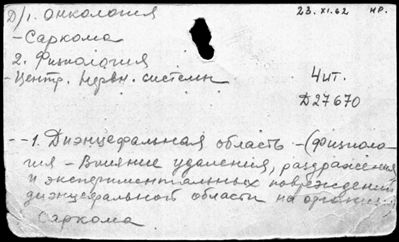 Д/1. Онкология 23.XI.62 нр.
- Саркома
2. Физиология
- Центр. нервн. системы
Чит.
Д27670
-- 1. Диэнцефальная область - (физиоло-
гия - Влияние удаления, раздражения
и экспериментальных повреждений
диэнцефальной области на организм
Саркома